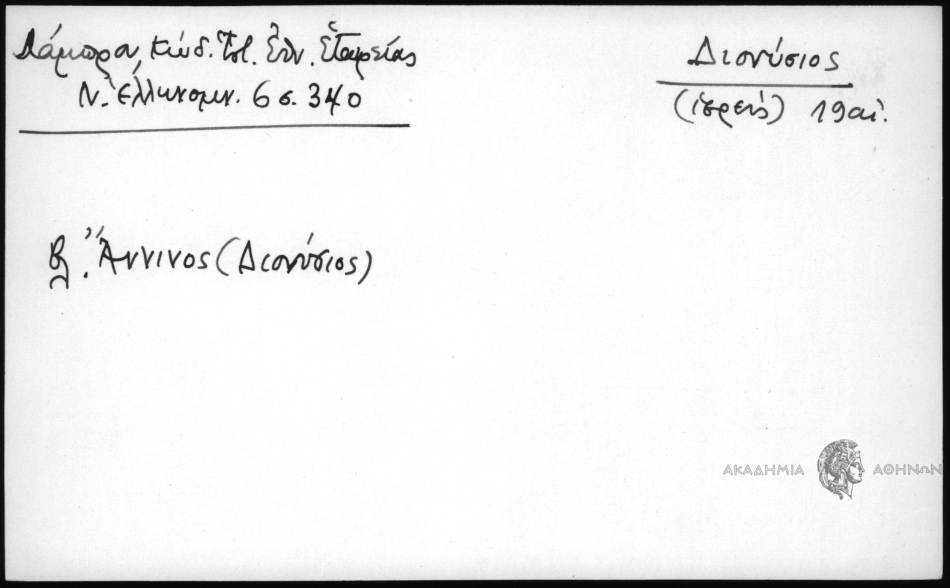 Λάμπρου, Κώδ. Ἱστ. Ἐθν. Ἑταιρείας
Ν. Ἑλληνομν. 6 σ. 340
Διονύσιος
(ἱερεύς) 19 αἰ.
βλ. Ἄννινος (Διονύσιος)
ΑΚΑΔΗΜΙΑ ΑΘΗΝΩΝ